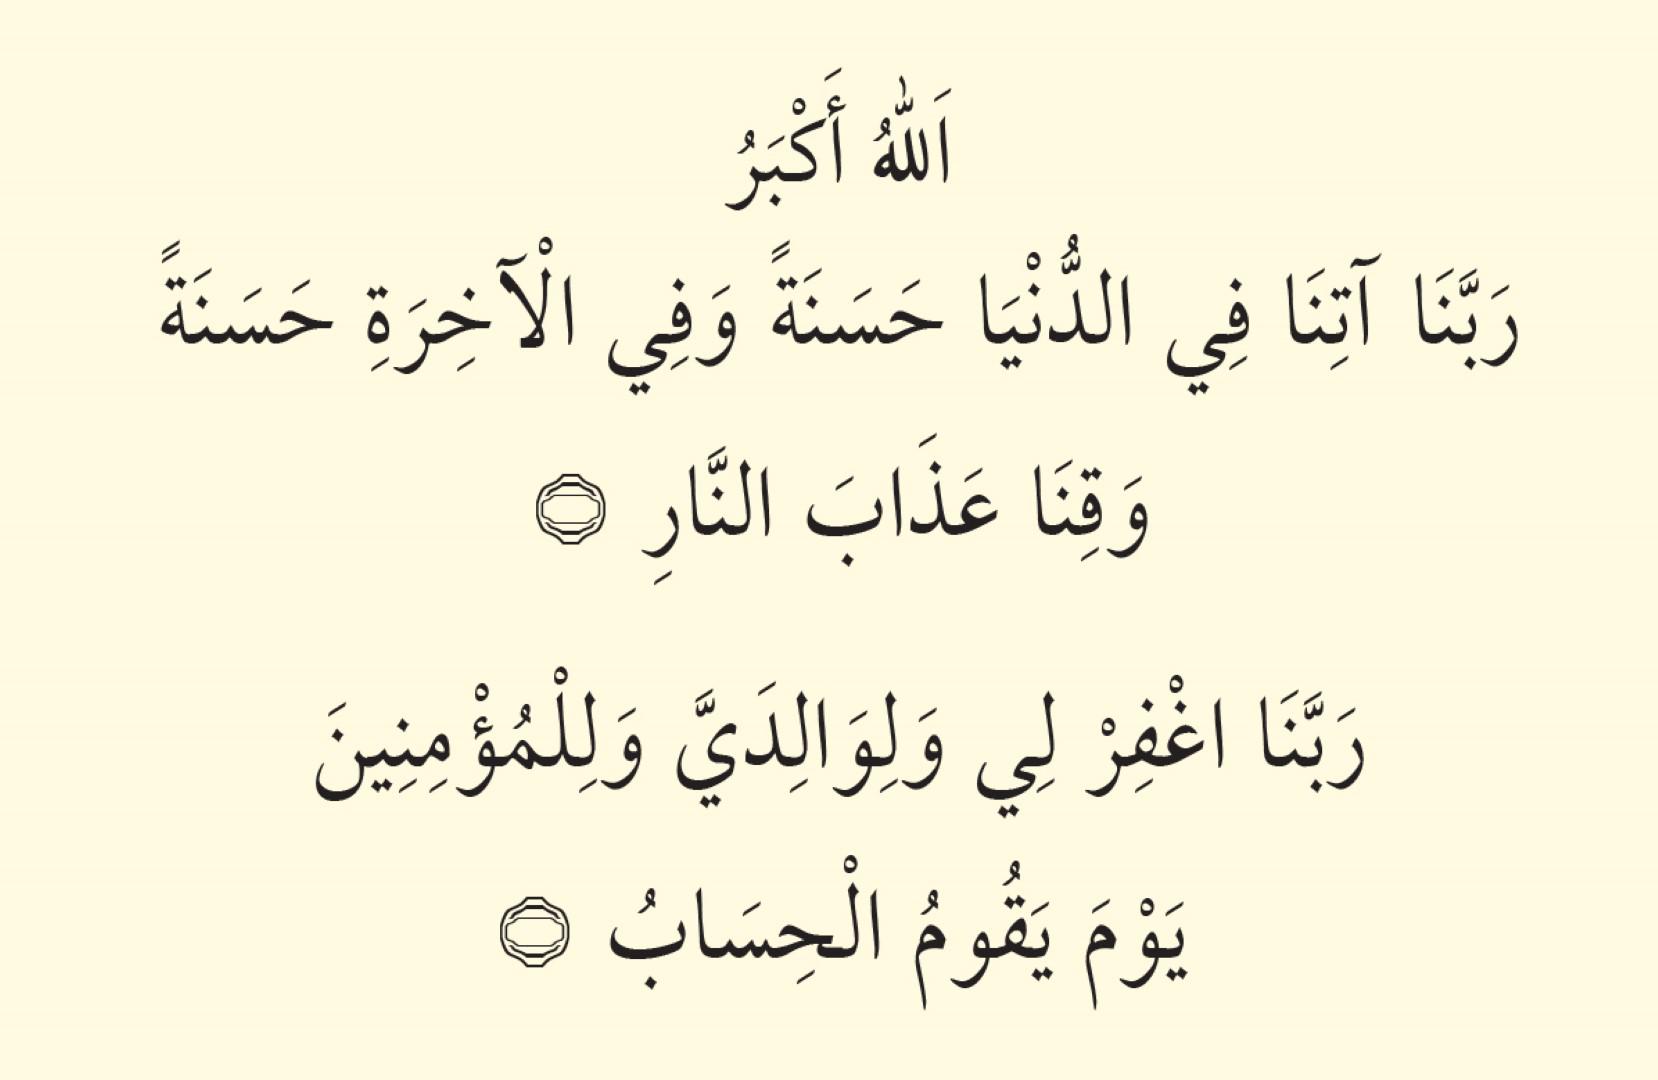 اَللّٰهُ أَكْبَرُ
رَبَّنَا آتِنَا فِي الدُّنْيَا حَسَنَةً وَفِي الْآخِرَةِ حَسَنَةً
وَقِنَا عَذَابَ النَّارِ ۝
رَبَّنَا اغْفِرْ لِي وَلِوَالِدَيَّ وَلِلْمُؤْمِنِينَ
يَوْمَ يَقُومُ الْحِسَابُ ۝